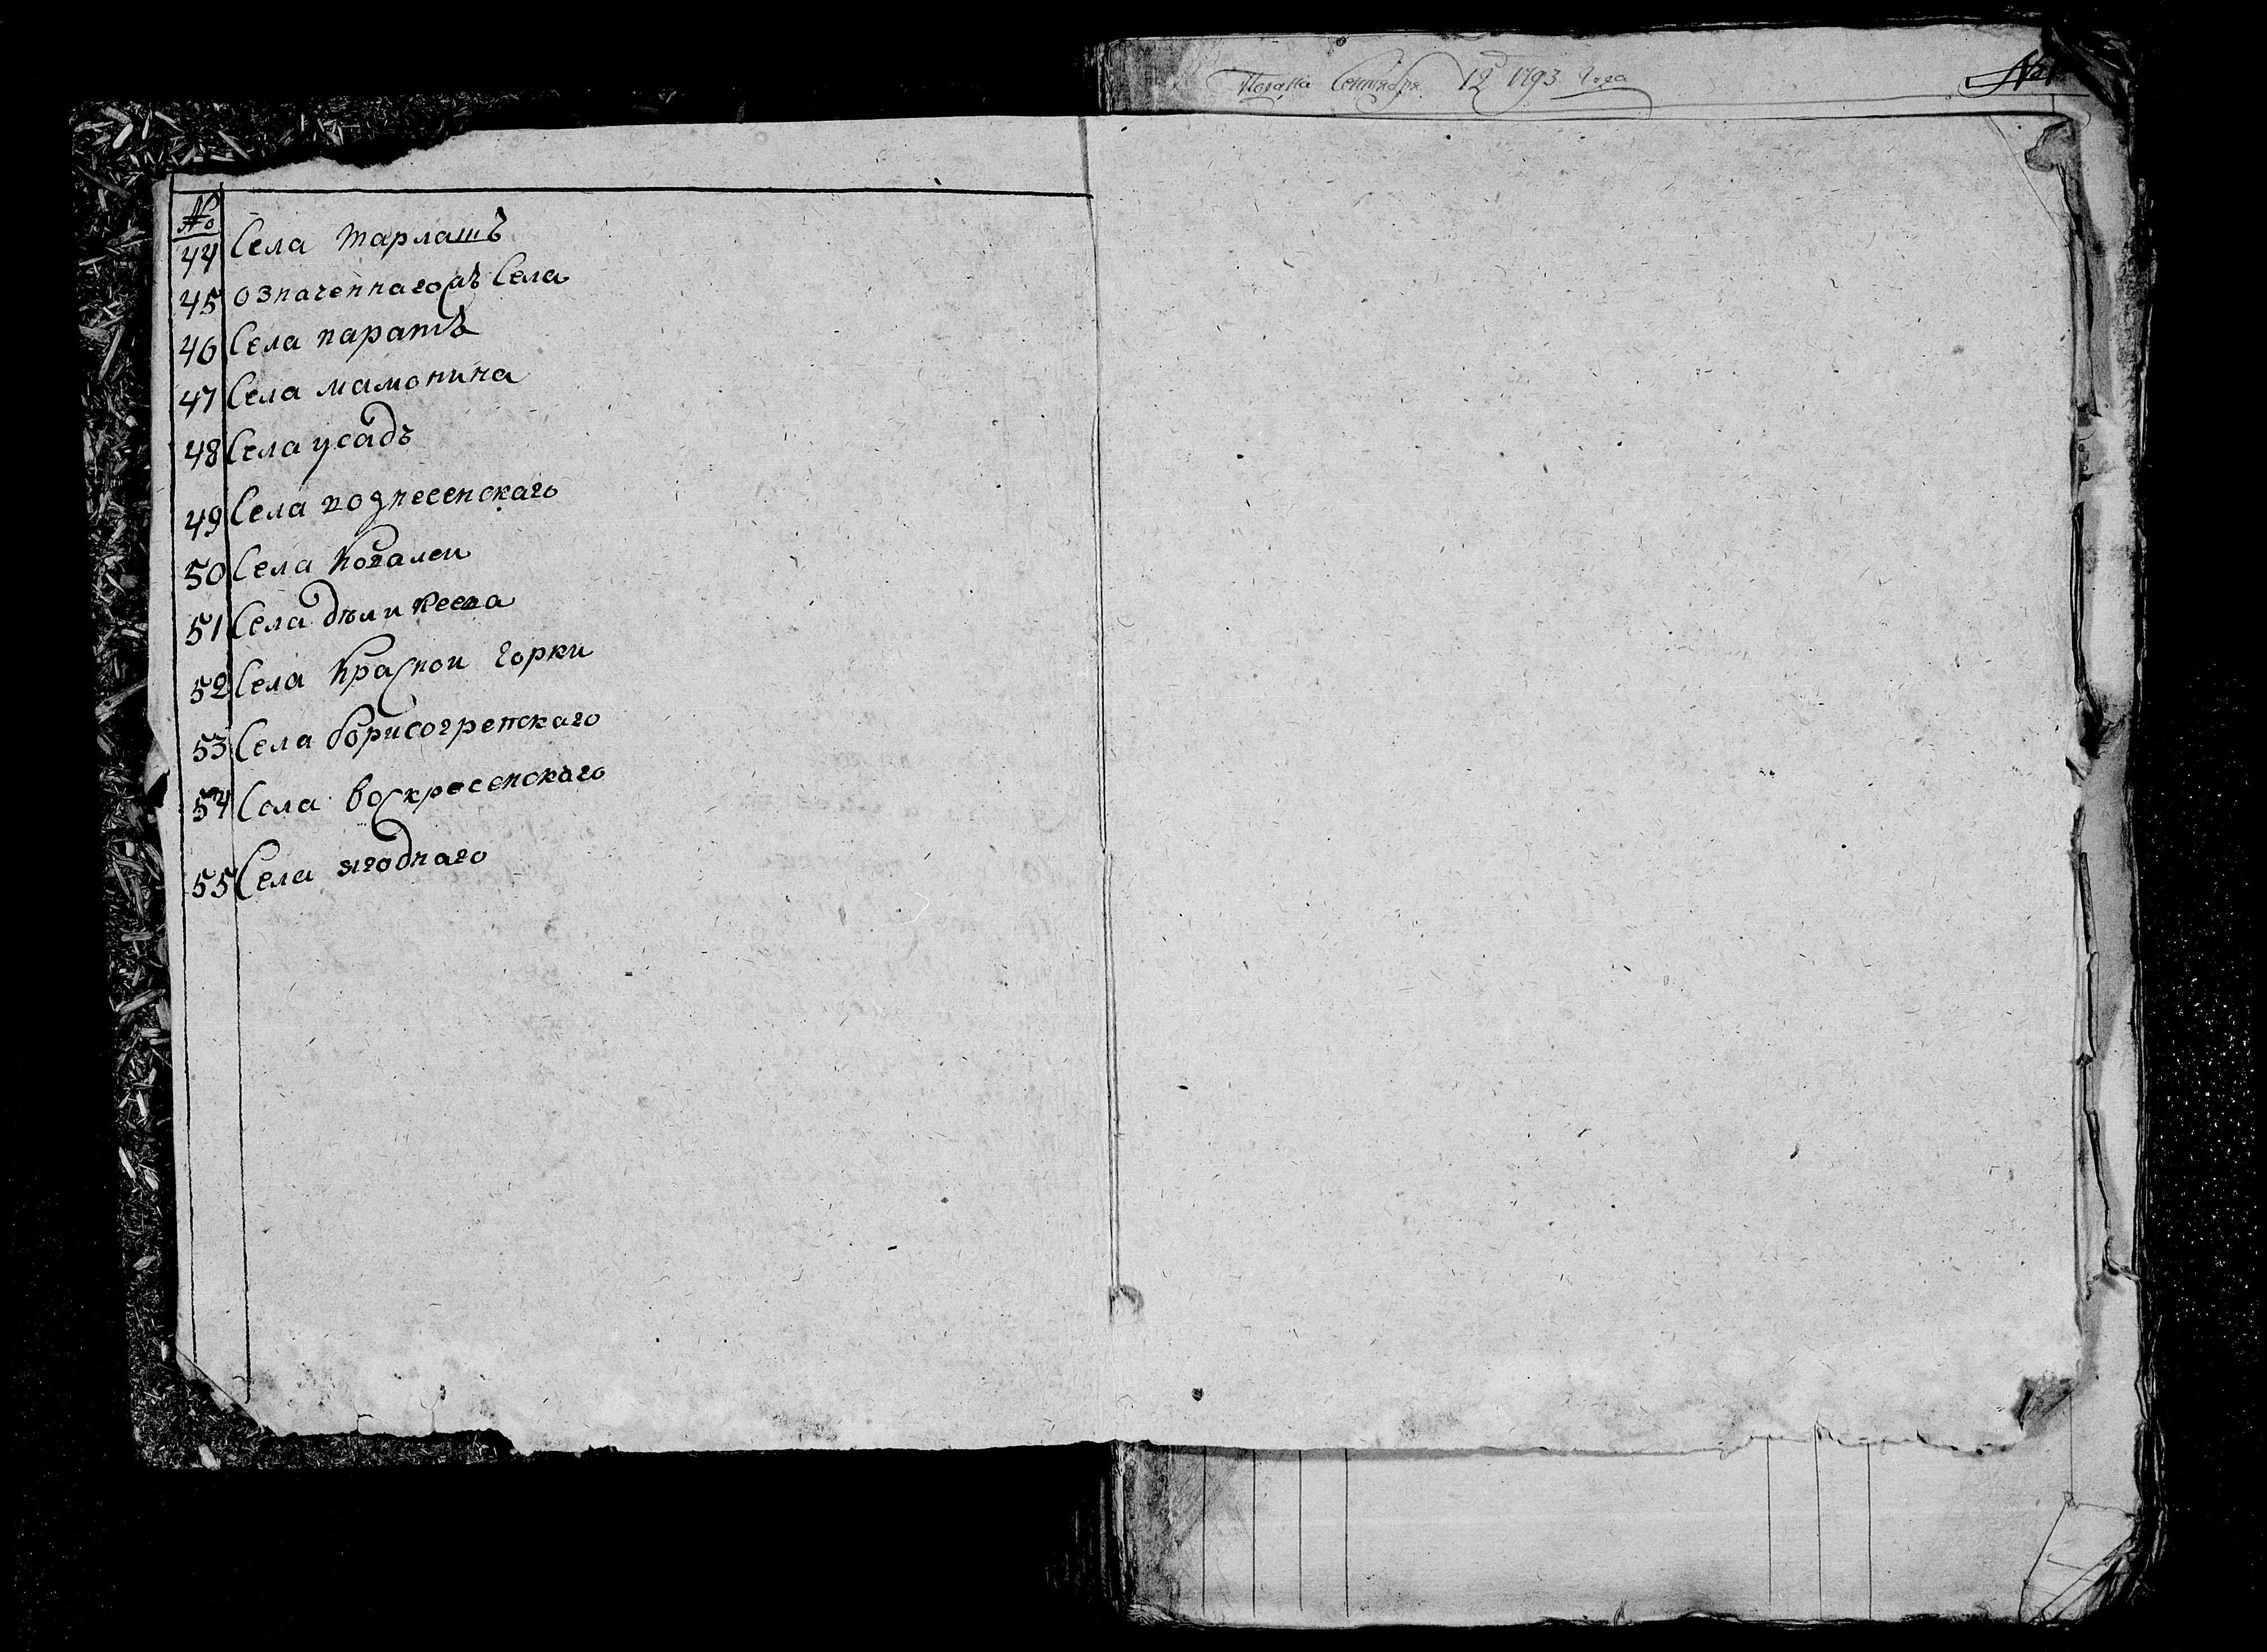 №
44 Села тарлашъ
45 означеннагожъ Села
46 Села паратъ
47 Села мамонина
48 Села усадъ
49 Села вознесенскаго
50 Села Ковалеи
51 Села
52 Села Краснои Горки
53 Села борисогрепскаго
54 Села воскресенскаго
55 Села ягоднаго
Подана Сентября 12 1793 Года